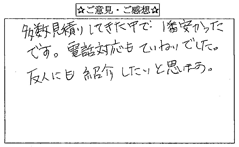 ☆ご意見・ご感想☆
多数見積りしてきた中で1番安かった
です。電話対応もていねいでした。
友人にも紹介したいと思います。